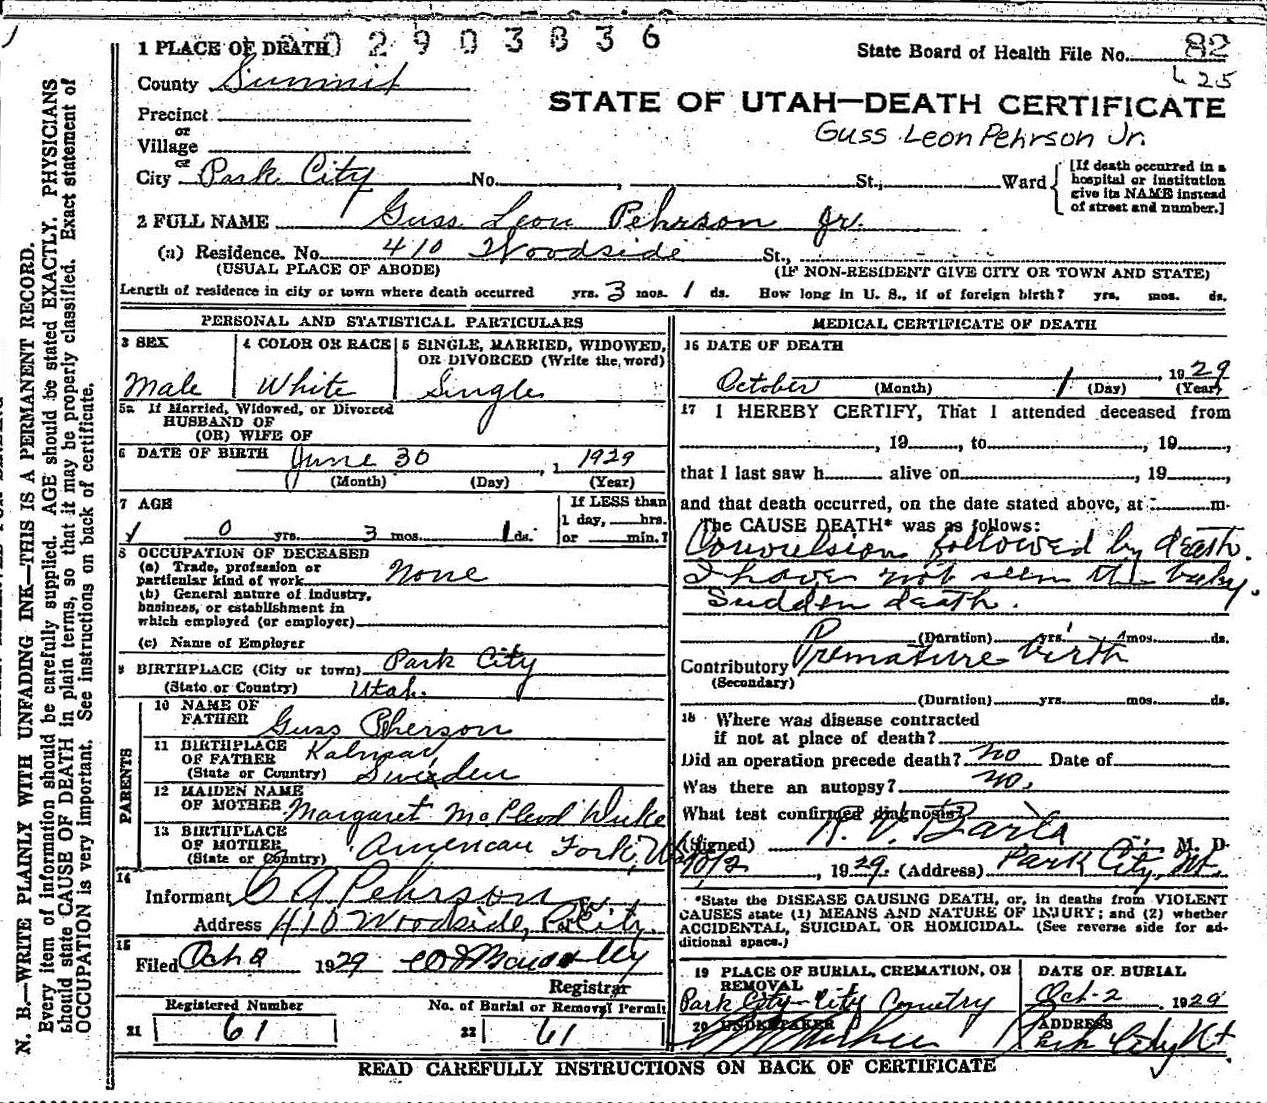 2903836
1 PLACE OF DEATH
State Board of Health File No. 82
625
County Summit
STATE OF UTAH—DEATH CERTIFICATE
Precinct
or
Guss Leon Pehrson Jr.
Village
or
City Park City No. , St., Ward
[If death occurred in a hospital or institution give its NAME instead of street and number.]
2 FULL NAME Guss Leon Pehrson Jr.
(a) Residence. No. 410 Woodside St.,
(USUAL PLACE OF ABODE) (IF NON-RESIDENT GIVE CITY OR TOWN AND STATE)
Length of residence in city or town where death occurred yrs. 3 mos. 1 ds. How long in U. S., if of foreign birth? yrs. mos. ds.
PERSONAL AND STATISTICAL PARTICULARS
3 SEX
Male
4 COLOR OR RACE
White
5 SINGLE, MARRIED, WIDOWED,
OR DIVORCED (Write the word)
Single
5a If Married, Widowed, or Divorced
HUSBAND OF
(OR) WIFE OF
6 DATE OF BIRTH June 30, 1929
(Month) (Day) (Year)
7 AGE
0 yrs. 3 mos. 1 ds.
If LESS than
1 day, hrs.
or min.?
8 OCCUPATION OF DECEASED
(a) Trade, profession or
particular kind of work None
(b) General nature of industry,
business, or establishment in
which employed (or employer)
(c) Name of Employer
9 BIRTHPLACE (City or town) Park City
(State or Country) Utah.
PARENTS
10 NAME OF
FATHER Guss Pherson
11 BIRTHPLACE
OF FATHER Kalmar,
(State or Country) Sweden
12 MAIDEN NAME
OF MOTHER Margaret
13 BIRTHPLACE
OF MOTHER American Fork,
(State or Country)
14
Informant Pehrson
Address 410 Woodside, Park City
15
Filed Oct 2 1929
Registrar
Registered Number
21 61
No. of Burial or Removal Permit
22 61
MEDICAL CERTIFICATE OF DEATH
16 DATE OF DEATH
October 1, 1929
(Month) (Day) (Year)
17 I HEREBY CERTIFY, That I attended deceased from
, 19 , to , 19 ,
that I last saw h alive on , 19
and that death occurred, on the date stated above, at m.
The CAUSE DEATH* was as follows:
Convulsion followed by death.
I have not seen the baby.
Sudden death.
(Duration) yrs. mos. ds.
Contributory Premature birth
(Secondary)
(Duration) yrs. mos. ds.
18 Where was disease contracted
if not at place of death?
Did an operation precede death? no Date of
Was there an autopsy? no.
What test confirmed diagnosis?
(Signed) M. D.
10/2, 1929. (Address) Park City, Ut.
*State the DISEASE CAUSING DEATH, or, in deaths from VIOLENT
CAUSES state (1) MEANS AND NATURE OF INJURY; and (2) whether
ACCIDENTAL, SUICIDAL OR HOMICIDAL. (See reverse side for ad-
ditional space.)
19 PLACE OF BURIAL, CREMATION, OR
REMOVAL
Park City City
DATE OF BURIAL
Oct-2 1929
20 UNDERTAKER
ADDRESS
Park City Ut
READ CAREFULLY INSTRUCTIONS ON BACK OF CERTIFICATE
N. B.—WRITE PLAINLY WITH UNFADING INK—THIS IS A PERMANENT RECORD.
Every item of information should be carefully supplied. AGE should be stated EXACTLY. PHYSICIANS
should state CAUSE OF DEATH in plain terms, so that it may be properly classified. Exact statement of
OCCUPATION is very important. See instructions on back of certificate.